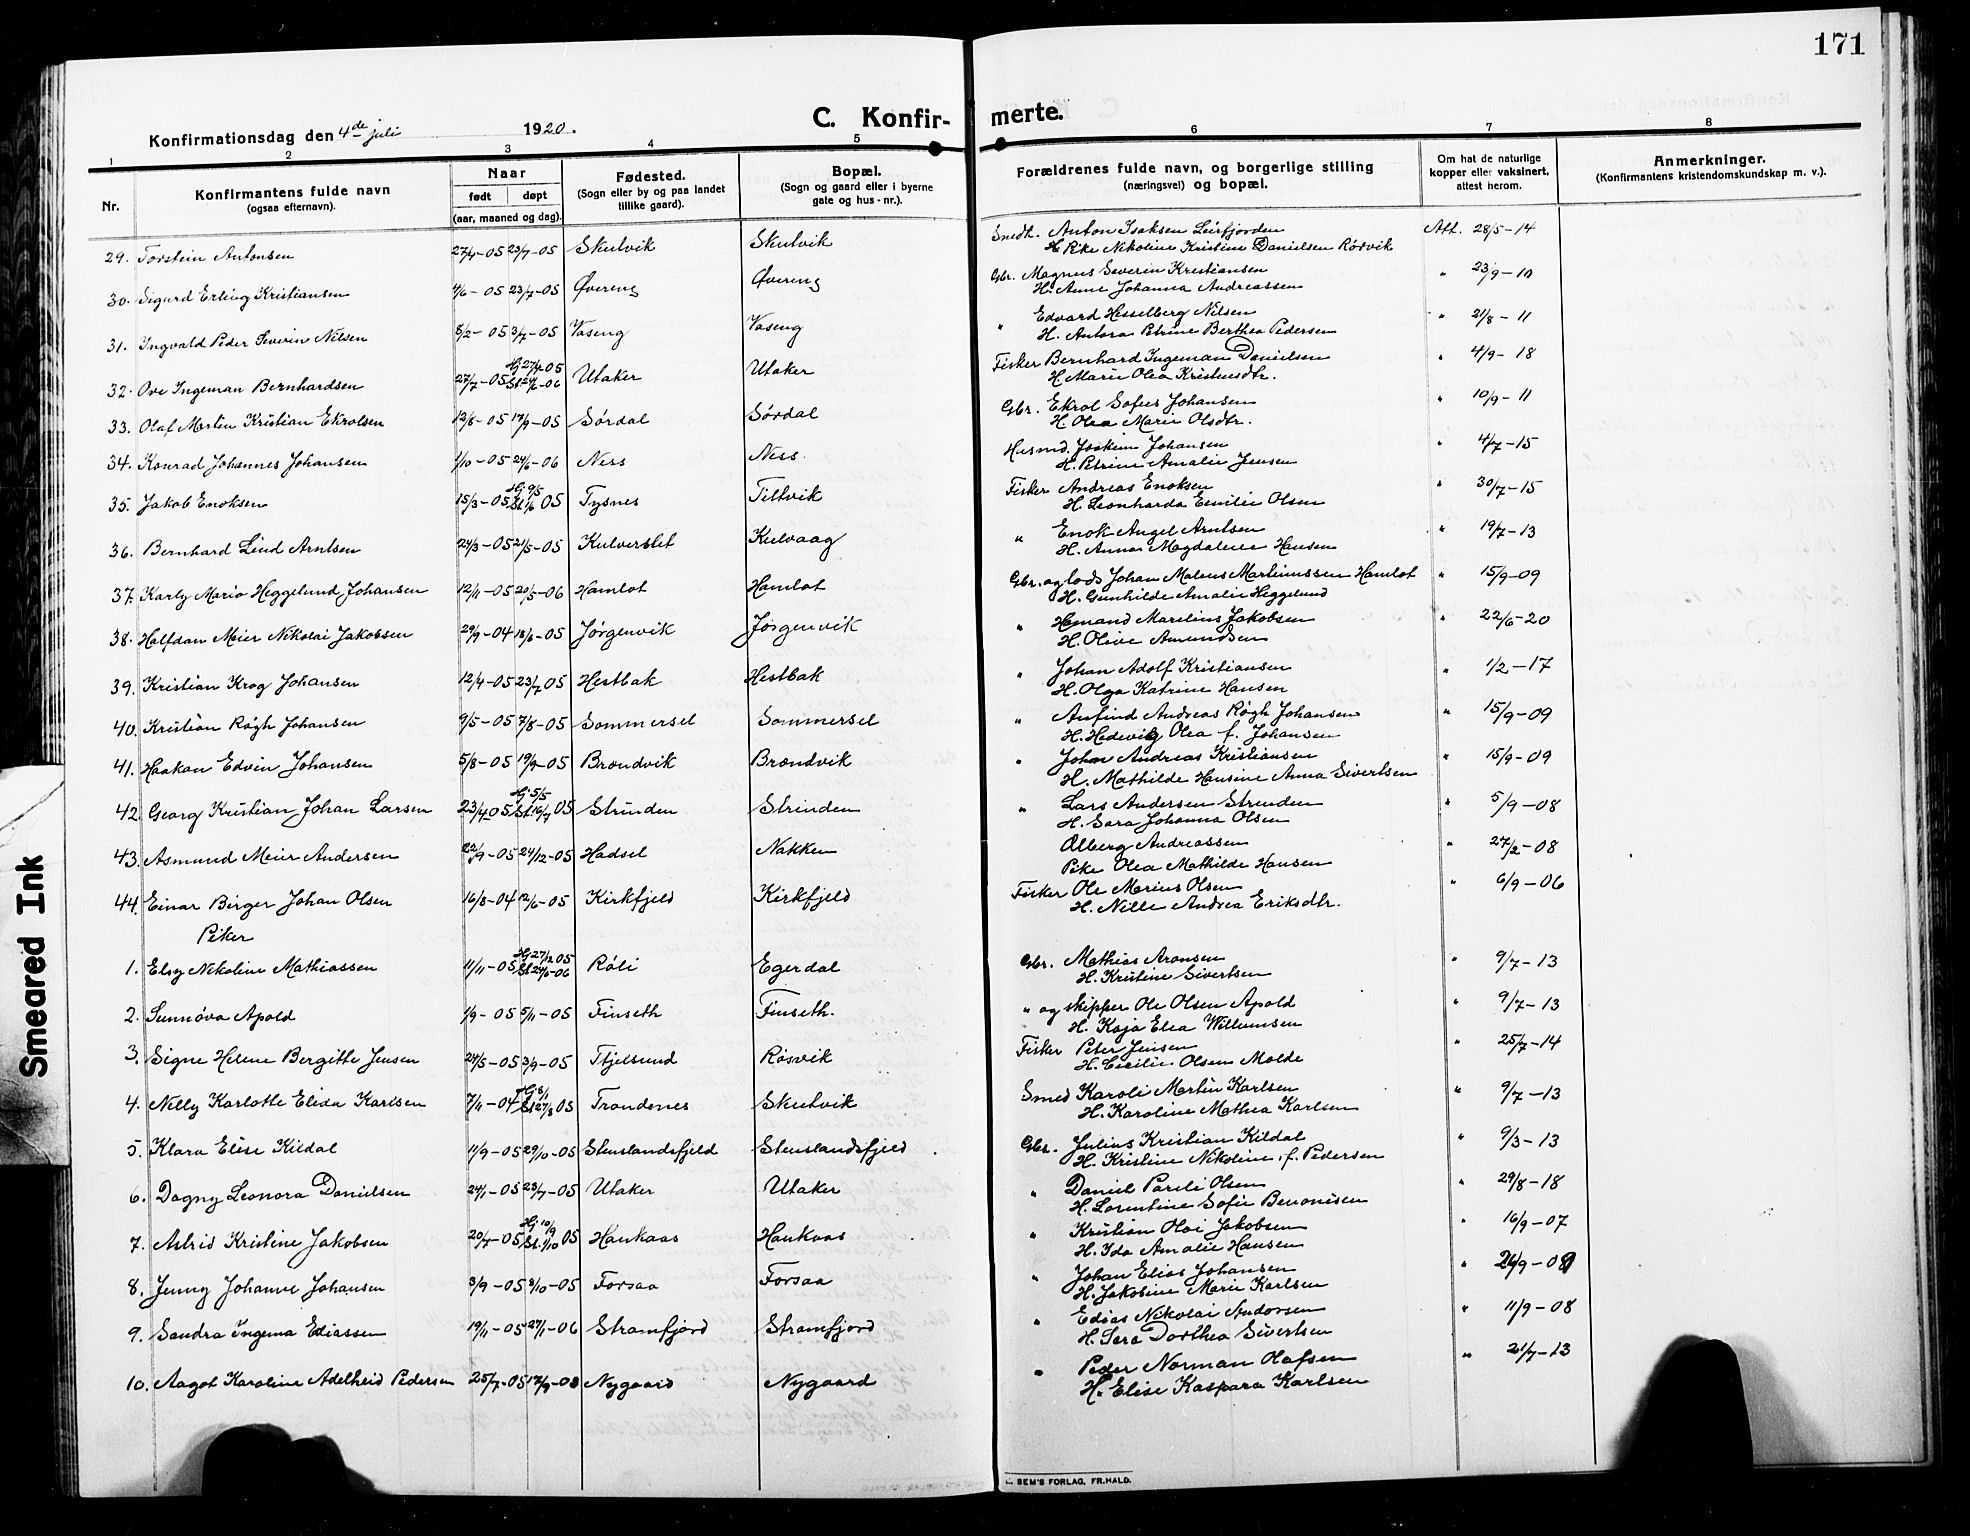 171
C. Konfir-
merte.
Konfirmationsdag den 4de juli 1920.
1 2 3 4 5
6 7 8
Nr. Konfirmantens fulde navn (ogsaa efternavn). Naar født døpt (aar, maaned og dag). Fødested. (Sogn eller by og paa landet tillike gaard). Bopæl. (Sogn og gaard eller i byerne gate og hus-nr.).
Forældrenes fulde navn, og borgerlige stilling (næringsvei) og bopæl. Om hat de naturlige kopper eller vaksinert, attest herom. Anmerkninger. (Konfirmantens kristendomskundskap m. v.).
29. Torstein Antonsen 27/4-05 23/7-05 Skutvik Skutvik
Smedh. Anton Isaksen Leirfjorden Att. 28/5-14
H Pike Nikoline Kristine Danielsen Rørvik
30. Sigurd Erling Kristiansen 4/6-05 23/7-05 Øvereng Øvereng
Gbr. Magnus Severin Kristiansen " 23/9-10
H. Anne Johanna Andreassen
31. Ingvald Peder Severin Nilsen 8/2-05 3/7-05 Vaseng Vaseng
" Edvard Hesselberg Nilsen " 21/8-11
H. Antora Petrine Berthea Pedersen
32. Ove Ingeman Bernhardsen 27/7-05 Hj 27/7-05 St 24/6-06 Utaker Utaker
Fisker Bernhard Ingeman Danielsen " 4/9-18
H. Marie Olea Kristensdtr.
33. Olaf Martin Kristian Ekrolsen 12/8-05 17/9-05 Sørdal Sørdal
Gbr. Ekrol Sofus Johansen " 10/9-11
H Olea Marie Olsdtr.
34. Konrad Johannes Johansen 1/10-05 24/6-06 Ness Ness.
Husmd. Joakim Johansen " 4/7-15
H. Petrine Amalie Jensen
35. Jakob Enoksen 15/3-05 Hj 9/5 St 1/6 05 Tysnes Tiltvik
Fisker Andreas Enoksen " 30/7-15
H. Leonharda Emilie Olsen
36. Bernhard Lind Arntsen 24/3-05 21/5-05 Kulverstet Kulvaag
" Enok Angel Arntsen " 19/7-13
H. Anna Magdalene Hansen
37. Karly Mario Heggelund Johansen 12/11-05 20/5-06 Hamlot Hamlot
Gbr. og lods Johan Maleus Martinussen Hamlot " 15/9-09
H. Gunhilde Amalie Heggelund
38. Halfdan Meier Nikolai Jakobsen 29/9-04 18/6-05 Jørgenvik Jørgenvik
" Hemand Marelius Jakobsen " 22/6-20
H. Olive Amundsen
39. Kristian Krog Johansen 12/4-05 23/7 05 Hestbak Hestbak
" Johan Adolf Kristiansen " 1/2-17
H. Olga Katrine Hansen
40. Kristian Røgh Johansen 9/5-05 7/8-05 Sommersel Sommersel
" Anfind Andreas Røgh Johansen " 15/9-09
H. Hedevig Olea f. Johansen
41. Haakon Edvin Johansen 5/8-05 19/9-05 Brøndvik Brøndvik
" Johan Andreas Kristiansen " 15/9-09
H. Mathilde Hansine Anna Sivertsen
42. Georg Kristian Johan Larsen 23/4 05 Hj 5/5 St. 16/7 05 Strinden Strinden
" Lars Andersen Strinden " 5/9-08
H. Sara Johanna Olsen
43. Asmund Meier Andersen 22/9-05 24/12-05 Hadsel Nakken
Alberg Andreassen " 27/2-08
Pike Olea Mathilde Hansen
44. Einar Birger Johan Olsen 16/8-04 12/6-05 Kirkfjeld Kirkfjeld
Fisker Ole Marius Olsen " 6/9-06
H. Nille Andrea Eriksdtr.
Piker
1. Elsy Nikoline Mathiassen 11/11-05 Hj 27/12 05 St 24/6-06 Røli Egerdal
Gbr. Mathias Aronsen " 9/7-13
H. Kristine Sivertsen
2. Sunnøva Apold 1/9-05 5/11-05 Finseth Finseth.
" og skipper Ole Olsen Apold " 9/7-13
H. Kaja Elea Willumsen
3. Signe Helene Bergitte Jensen 24/5-05 3/9-05 Tjelsund Røsvik
Fisker Peter Jensen " 25/7-14
H. Cecilie Olsen Molde
4. Nelly Karlotte Elida Karlsen 7/11-04 Hj 8/1 St 27/8 05 Trondenes Skutvik
Smed Karoli Martin Karlsen " 9/7-13
H. Karoline Mathea Karlsen
5. Klara Elise Kildal 11/9-05 29/10-05 Stenslandsfjeld Stenslandsfjeld
Gbr. Julius Kristian Kildal " 9/3-13
H. Kristine Nikoline, f. Pedersen
6. Dagny Leonora Danielsen 24/1-05 23/7-05 Utaker Utaker
" Daniel Pareli Olsen " 29/8-18
H. Lorentine Sofie Benonisen
7. Astrid Kristine Jakobsen 20/7-05 Hj 10/9 St. 1/10 05 Haukaas Haukaas
" Kristian Oloi Jakobsen " 16/9-07
H. Ida Amalie Hansen
8. Jenny Johanne Johansen 3/9-05 3/10-05 Forsaa Forsaa
" Johan Elias Johansen " 26/9-09
H. Jakobine Marie Karlsen
9. Sandra Ingema Ediassen 19/11-05 27/1-06 Stramfjord Stramfjord
" Edias Nikolai Andorsen " 11/9-08
H. Sara Dorthea Sivertsen
10. Aagot Karoline Adelheid Pedersen 25/7-05 17/9-08 Nygaard Nygaard
" Peder Norman Olafsen " 21/7-13
H. Elise Kaspara Karlsen
SEM'S FORLAG, FR.HALD.
Smeared Ink